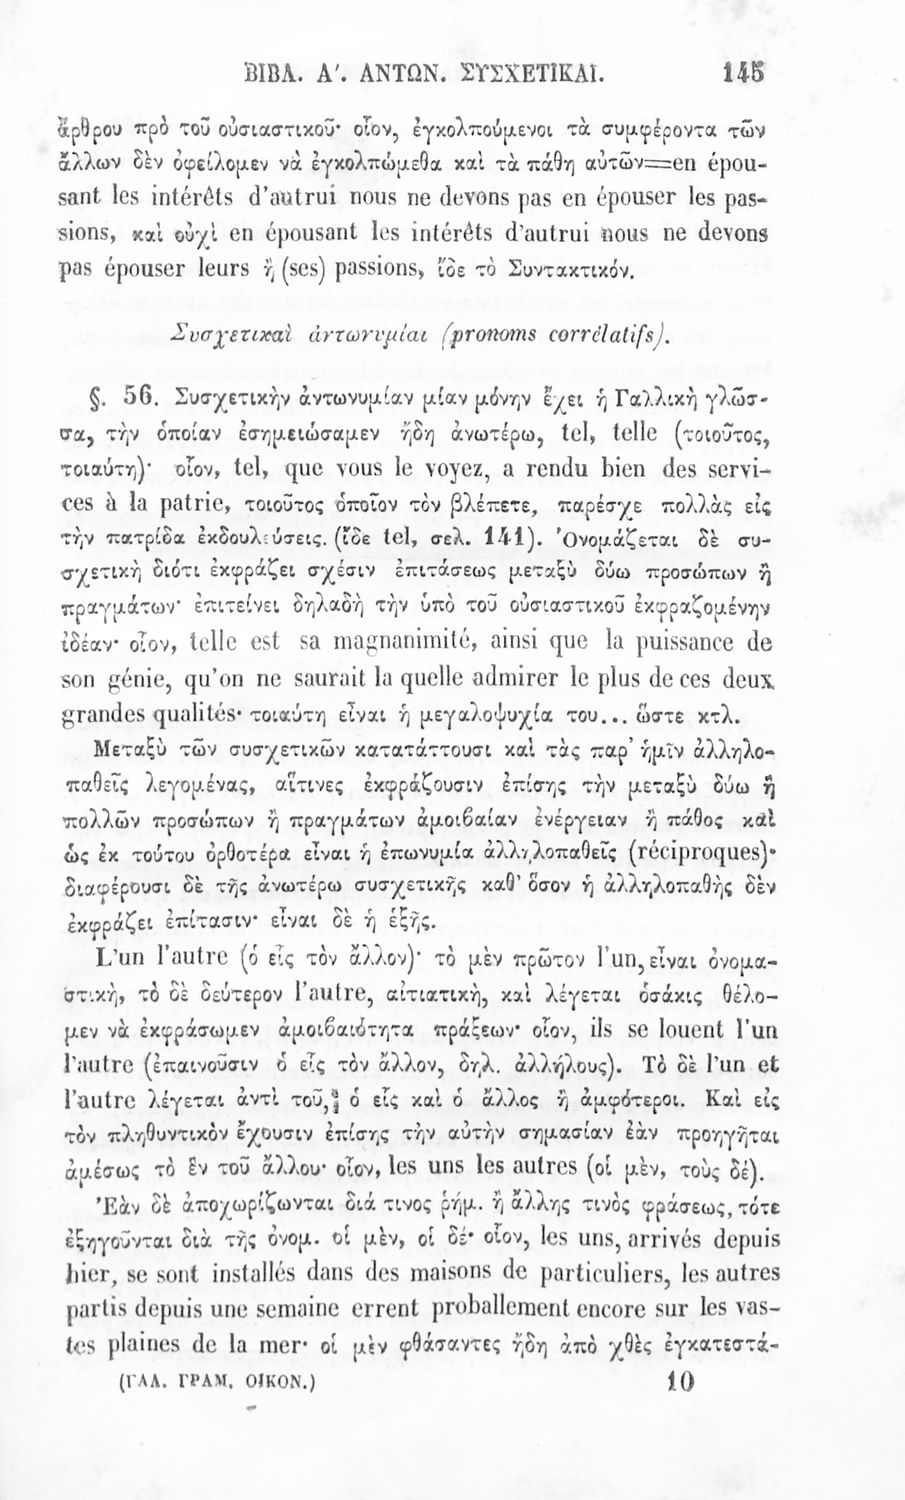 ΒΙΒΛ. Α΄. ΑΝΤΩΝ. ΣΥΣΧΕΤΙΚΑΙ. 145
ἄρθρου πρὸ τοῦ οὐσιαστικοῦ· οἷον, ἐγκολπούμενοι τὰ συμφέροντα τῶν
ἄλλων δὲν ὀφείλομεν νὰ ἐγκολπώμεθα καὶ τὰ πάθη αὐτῶν=en épou-
sant les intérêts d'autrui nous ne devons pas en épouser les pas-
sions, καὶ οὐχὶ en épousant les intérêts d'autrui nous ne devons
pas épouser leurs ἢ (ses) passions, ἴδε τὸ Συντακτικόν.
Συσχετικαὶ ἀντωνυμίαι (pronoms corrélatifs).
§. 56. Συσχετικὴν ἀντωνυμίαν μίαν μόνην ἔχει ἡ Γαλλικὴ γλῶσ-
σα, τὴν ὁποίαν ἐσημειώσαμεν ἤδη ἀνωτέρω, tel, telle (τοιοῦτος,
τοιαύτη)· οἷον, tel, que vous le voyez, a rendu bien des servi-
ces à la patrie, τοιοῦτος ὁποῖον τὸν βλέπετε, παρέσχε πολλὰς εἰς
τὴν πατρίδα ἐκδουλεύσεις. (ἴδε tel, σελ. 141). Ὀνομάζεται δὲ συ-
σχετικὴ διότι ἐκφράζει σχέσιν ἐπιτάσεως μεταξὺ δύω προσώπων ἢ
πραγμάτων· ἐπιτείνει δηλαδὴ τὴν ὑπὸ τοῦ οὐσιαστικοῦ ἐκφραζομένην
ἰδέαν· οἷον, telle est sa magnanimité, ainsi que la puissance de
son génie, qu'on ne saurait la quelle admirer le plus de ces deux
grandes qualités· τοιαύτη εἶναι ἡ μεγαλοψυχία του... ὥστε κτλ.
Μεταξὺ τῶν συσχετικῶν κατατάττουσι καὶ τὰς παρ' ἡμῖν ἀλληλο-
παθεῖς λεγομένας, αἵτινες ἐκφράζουσιν ἐπίσης τὴν μεταξὺ δύω ἢ
πολλῶν προσώπων ἢ πραγμάτων ἀμοιβαίαν ἐνέργειαν ἢ πάθος καὶ
ὡς ἐκ τούτου ὀρθοτέρα εἶναι ἡ ἐπωνυμία ἀλληλοπαθεῖς (réciproques)·
διαφέρουσι δὲ τῆς ἀνωτέρω συσχετικῆς καθ' ὅσον ἡ ἀλληλοπαθὴς δὲν
ἐκφράζει ἐπίτασιν· εἶναι δὲ ἡ ἑξῆς.
L'un l'autre (ὁ εἷς τὸν ἄλλον)· τὸ μὲν πρῶτον l'un, εἶναι ὀνομα-
στικὴ, τὸ δὲ δεύτερον l'autre, αἰτιατικὴ, καὶ λέγεται ὁσάκις θέλο-
μεν νὰ ἐκφράσωμεν ἀμοιβαιότητα πράξεων· οἷον, ils se louent l'un
l'autre (ἐπαινοῦσιν ὁ εἷς τὸν ἄλλον, δηλ. ἀλλήλους). Τὸ δὲ l'un et
l'autre λέγεται ἀντὶ τοῦ, ὁ εἷς καὶ ὁ ἄλλος ἢ ἀμφότεροι. Καὶ εἰς
τὸν πληθυντικὸν ἔχουσιν ἐπίσης τὴν αὐτὴν σημασίαν ἐὰν προηγῆται
ἀμέσως τὸ ἓν τοῦ ἄλλου· οἷον, les uns les autres (οἱ μὲν, τοὺς δέ).
Ἐὰν δὲ ἀποχωρίζωνται διά τινος ῥήμ. ἢ ἄλλης τινὸς φράσεως, τότε
ἐξηγοῦνται διὰ τῆς ὀνομ. οἱ μὲν, οἱ δέ· οἷον, les uns, arrivés depuis
hier, se sont installés dans des maisons de particuliers, les autres
partis depuis une semaine errent proballement encore sur les vas-
tes plaines de la mer· οἱ μὲν φθάσαντες ἤδη ἀπὸ χθὲς ἐγκατεστά-
(ΓΑΛ. ΓΡΑΜ. ΟΙΚΟΝ.) 10